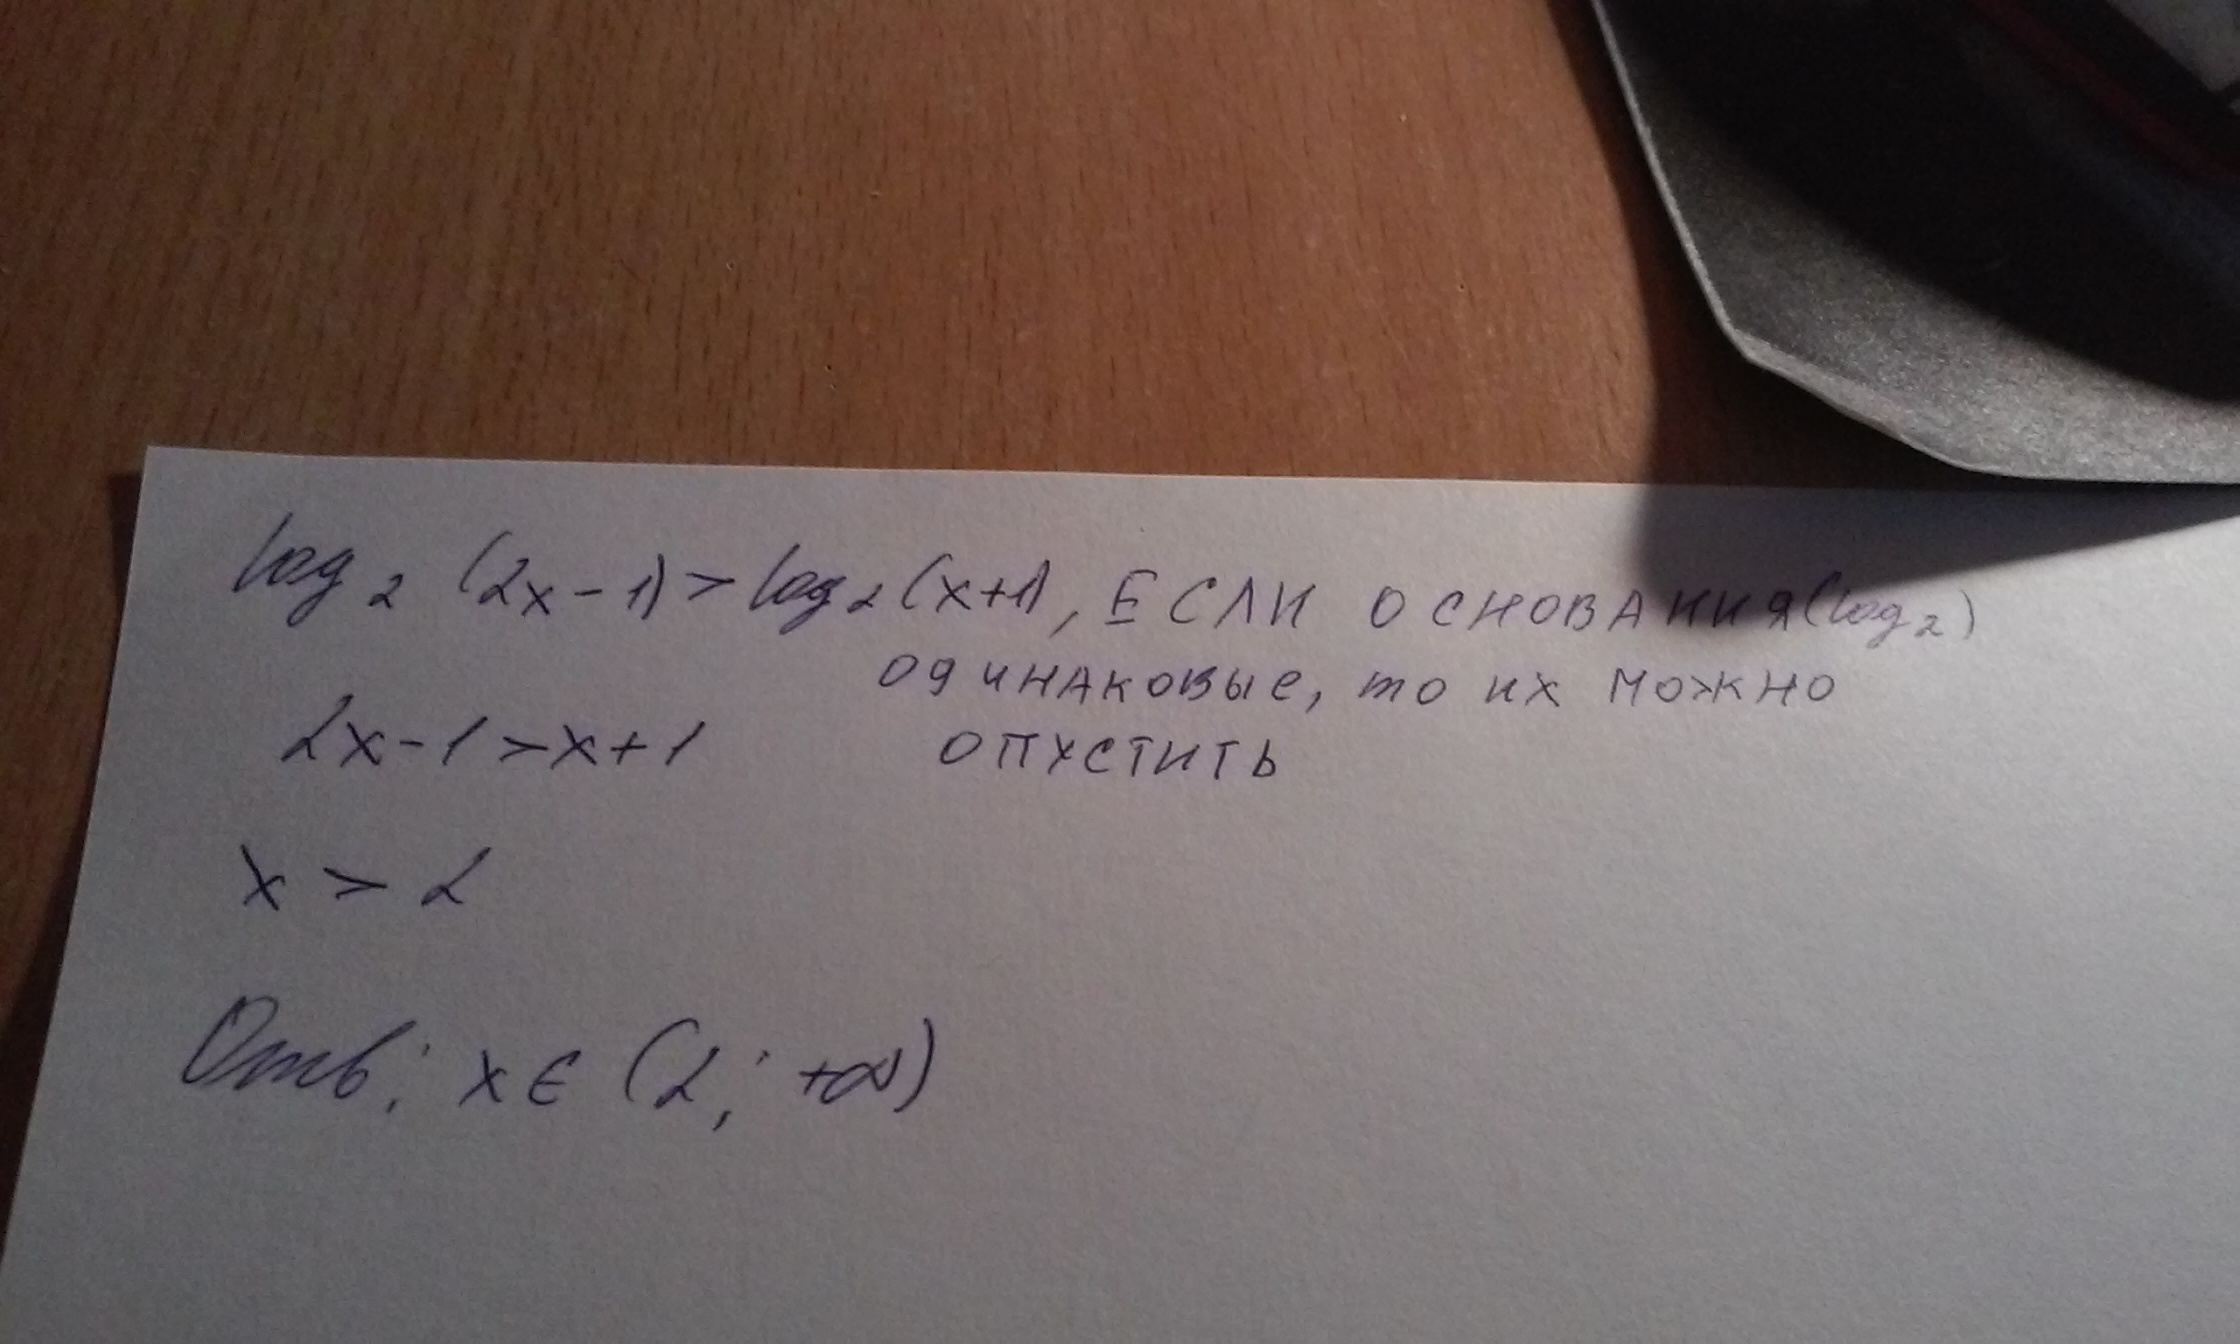 log₂ (2x-1)>log₂(x+1), ЕСЛИ ОСНОВАНИЯ(log₂)
одинаковые, то их можно
2x-1>x+1 опустить
x > 2
Отв; x∈ (2; +∞)